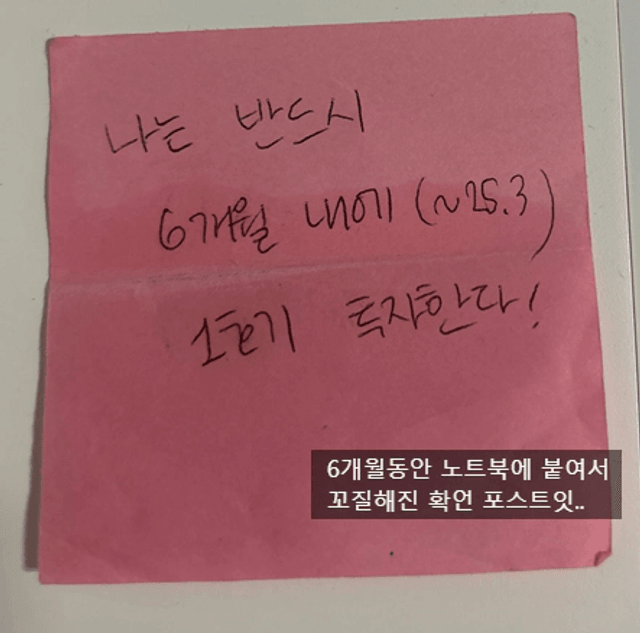 나는 반드시
6개월 내에 (~25.3)
1호기 투자한다!
6개월동안 노트북에 붙여서
꼬질해진 확언 포스트잇..